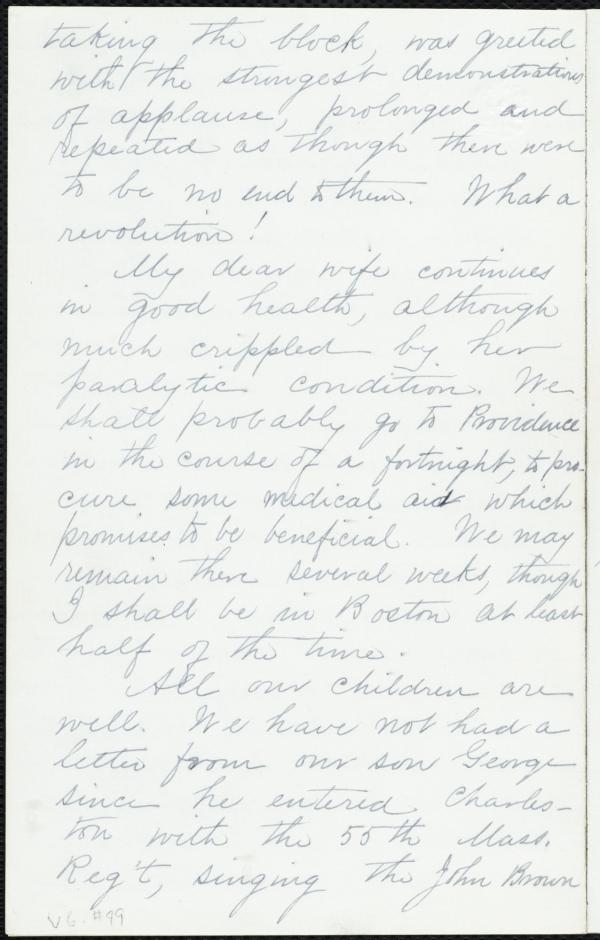 taking the block, was greeted
with the strongest demonstrations
of applause, prolonged and
repeated as though there were
to be no end to them. What a
revolution!
My dear wife continues
in good health, although
much crippled by her
paralytic condition. We
shall probably go to Providence
in the course of a fortnight, to pro-
cure some medical aid which
promises to be beneficial. We may
remain there several weeks, though
I shall be in Boston at least
half of the time.
All our children are
well. We have not had a
letter from our son George
since he entered Charles-
ton with the 55th Mass.
Reg't, singing the John Brown
V6. #99